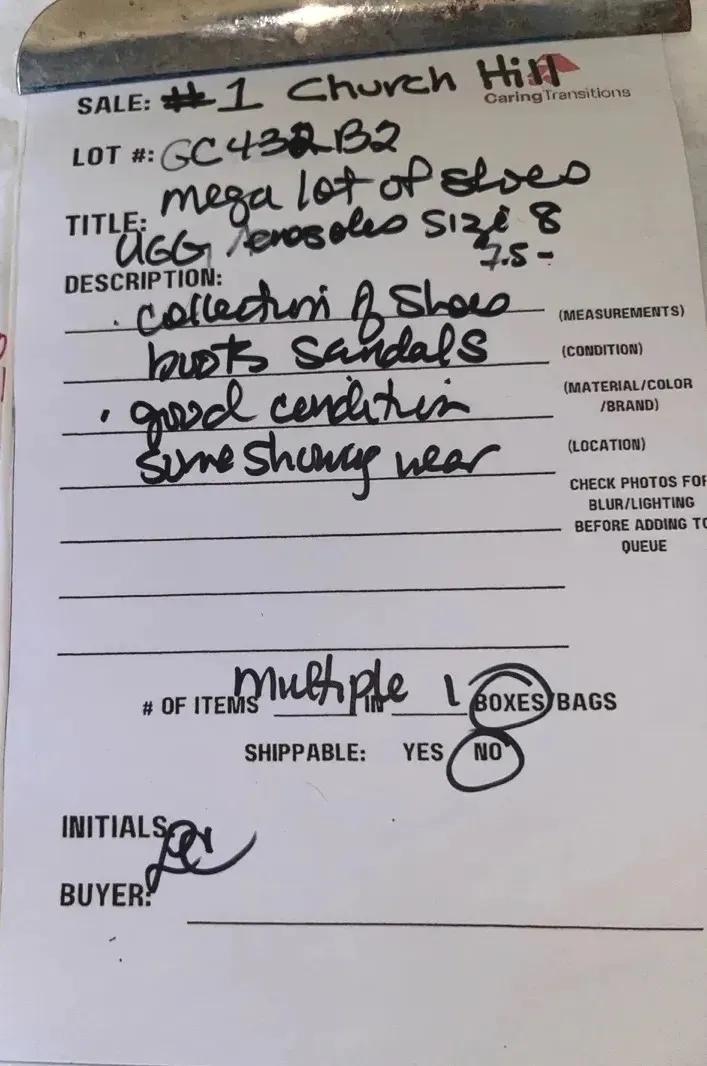 SALE: #1 Church Hill
Caring Transitions
LOT #: GC432B2
mega lot of shoes
TITLE: UGG Aerosoles Size 8
7.5-
DESCRIPTION:
. collection of shoes
(MEASUREMENTS)
boots sandals
(CONDITION)
(MATERIAL/COLOR
/BRAND)
. good condition
(LOCATION)
some showing wear
CHECK PHOTOS FOR
BLUR/LIGHTING
BEFORE ADDING TO
QUEUE
# OF ITEMS multiple IN 1 BOXES/BAGS
SHIPPABLE: YES NO
INITIALS
BUYER: